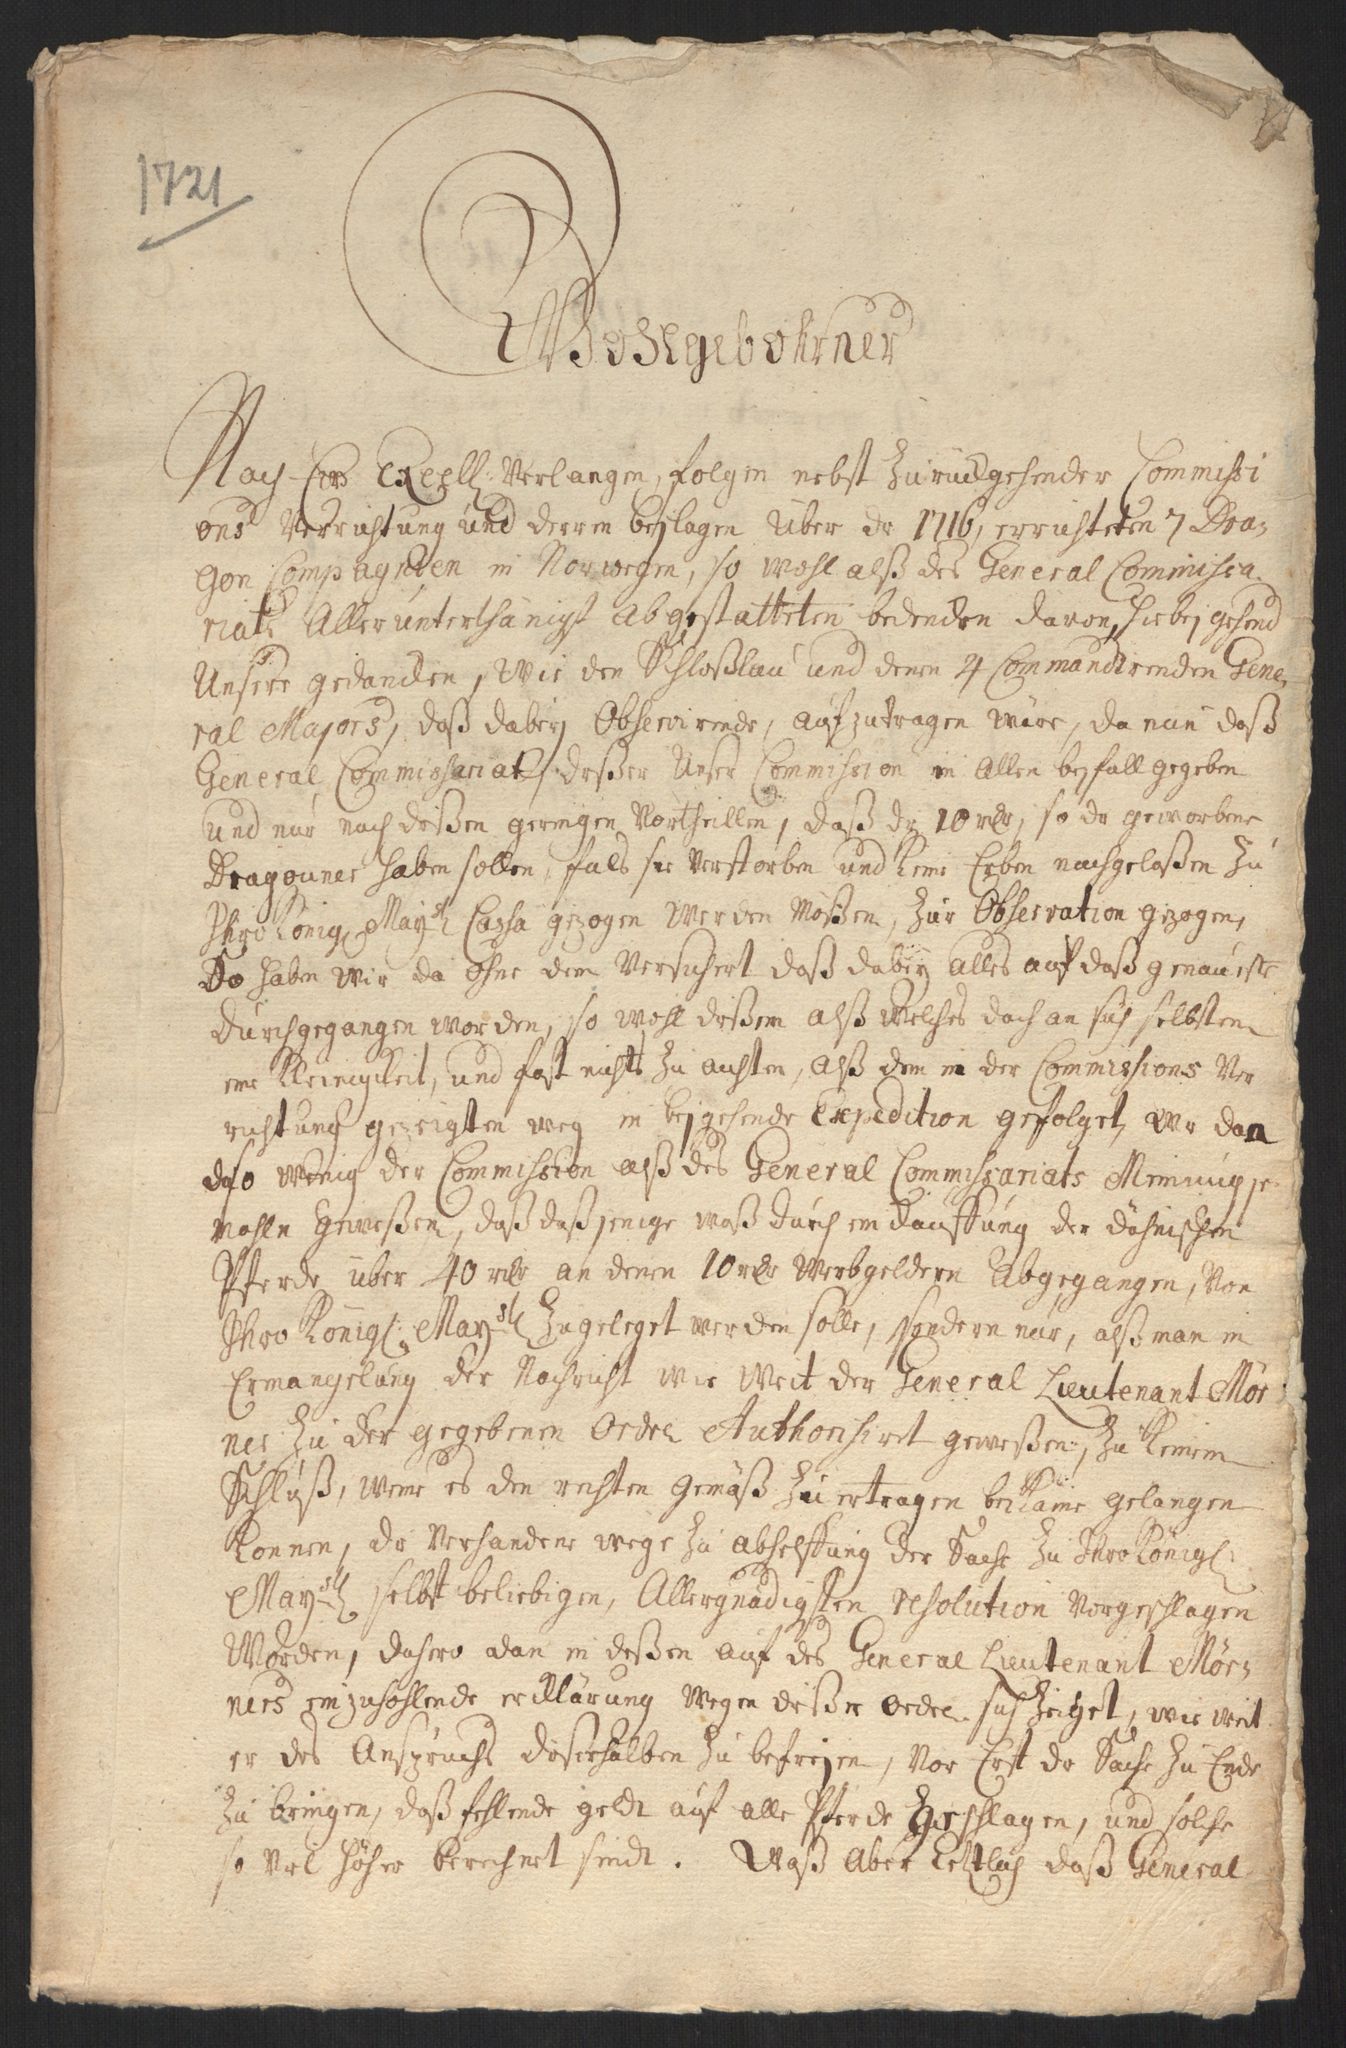 1721
Wohlgebohrner
Nach Ew Exell: Verlangen, folgen nebst Zurückgehender Commissi
ons Verrichtung und derren beylagen über de 1716, errichteten 7 Dra-
gon Compagnien in Norwegen, so wohl alß des General Commissa-
riats Allerunterthänigst abgestatteten bedencken davon, hiebej gehend
Unsere gedancken, wie den Schloßlau und denen 4 Commandirenden Gene-
ral Majors, daß dabey Observirende, aufzutragen wäre, da nun daß
General Commissariat, dießer Unser Commission in Allen beyfall gegeben
und nur nach dießen geringen Vortheillen, daß die 10 rdr, so die geworbene
Dragouner haben sollen, fals sie Verstorben und keine Erben nachgelaßen zu
Ihro Königl Mayst Cassa gezogen werden müßen, zur Observation gezogen,
So haben wir da ohne dem Versichert daß dabey alles auf daß genaueste
durchgegangen worden, so wohl dießem alß welches doch an sich selbsten
eine Kleinigkeit, und fast nichts zu achten, alß dem in der Commissions Ver
richtung gezeigten weg in beygehende Expedition gefolget, Wie dan
also wenig der Commission alß des General Commissariats Meinung je-
mahln geweßen, daß daßjenige waß durch ein Kauffung der dähnischen
Pferde über 40 rdr an denen 10 rdr Werbgeldern Abgegangen, Von
Ihro Königl: Mayst Zugeleget werden solle, sondern nur, alß man in
Ermangelung der Nachricht wie weit der General Lieutenant Mör
ner zu der gegebenen Ordre Authorisiret geweßen, zu keinem
Schluß, wenn es den rechten gemäß zu ertragen bekäme gelangen
können, die Verhandene wege zu abhelffung der Sache zu Ihro Königl:
Mayst selbst beliebigen, Allergnädigsten resolution Vorgeschlagen
Worden, dahero dan in deßen auf des General Lieutenant Mör-
ners einzuhohlende erklärung wegen dießer Ordre sich zeiget, wie weit
er des Anspruchs dieserhalben zu befreyen, Vor Erst die Sache zu Ende
zu bringen, daß fehlende geldt auf alle Pferde geschlagen, und solche
so Viel höher berechnet sindt. Waß aber letztlich daß General